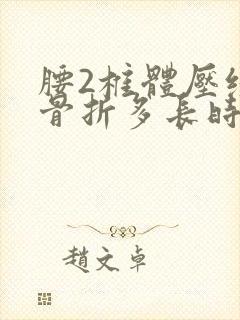 腰2椎體壓
骨折多長時
趙文卓